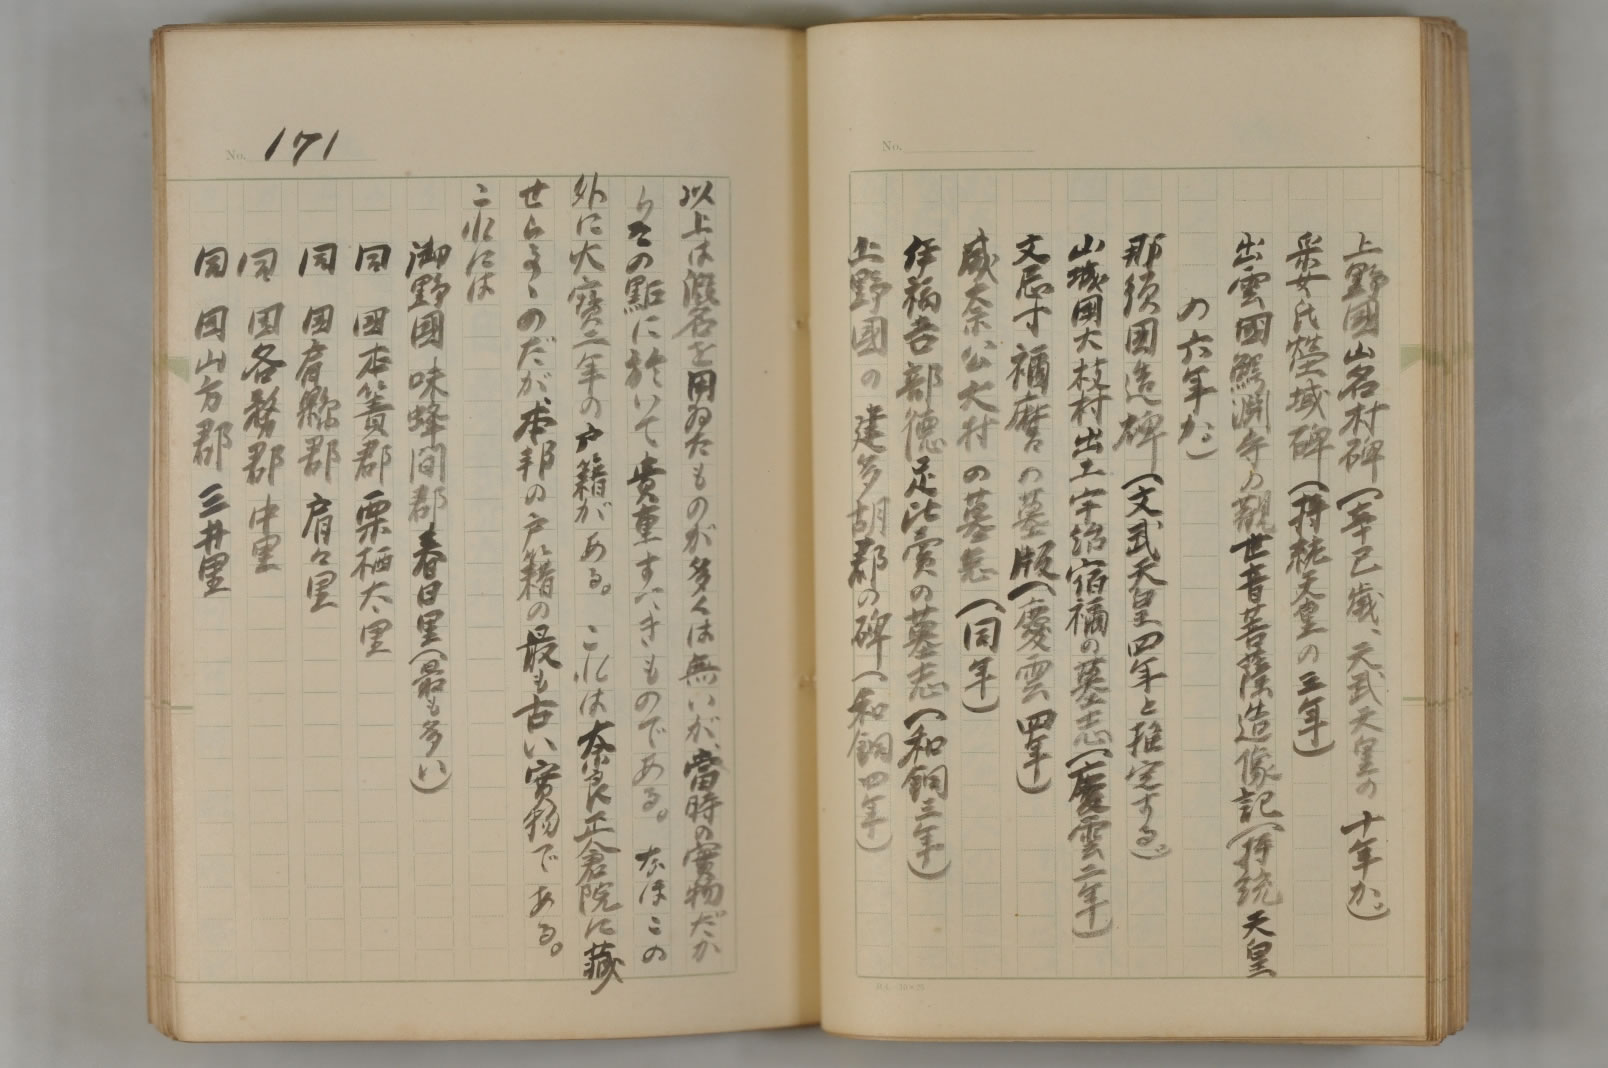 No.
上野國山名村碑(辛巳歳、天武天皇の十年か。)
采女氏塋域碑(持統天皇の三年)
出雲國鰐淵寺の觀世音菩薩造像記(持統天皇
の六年か。)
那須国造碑(文武天皇四年と推定する。)
山城国大枝村出土宇治宿禰の墓志(慶雲二年)
文忌寸禰麿の墓版(慶雲四年)
威奈公大村の墓志(同年)
伊福吉部徳足比賣の墓志(和銅三年)
上野國の建多胡郡の碑(和銅四年)
No. 171
以上は漢名を用ゐたものが多くは無いが、當時の實物だか
らその點に於いて貴重すべきものである。なほこの
外に大寳二年の戸籍がある。これは奈良正倉院に藏
せらるゝのだが、本邦の戸籍の最も古い實物である。
これには
御野國味蜂間郡春日里(最も多い)
同国本簀郡栗栖太里
同国肩縣郡肩々里
同国各務郡中里
同国山方郡三井里